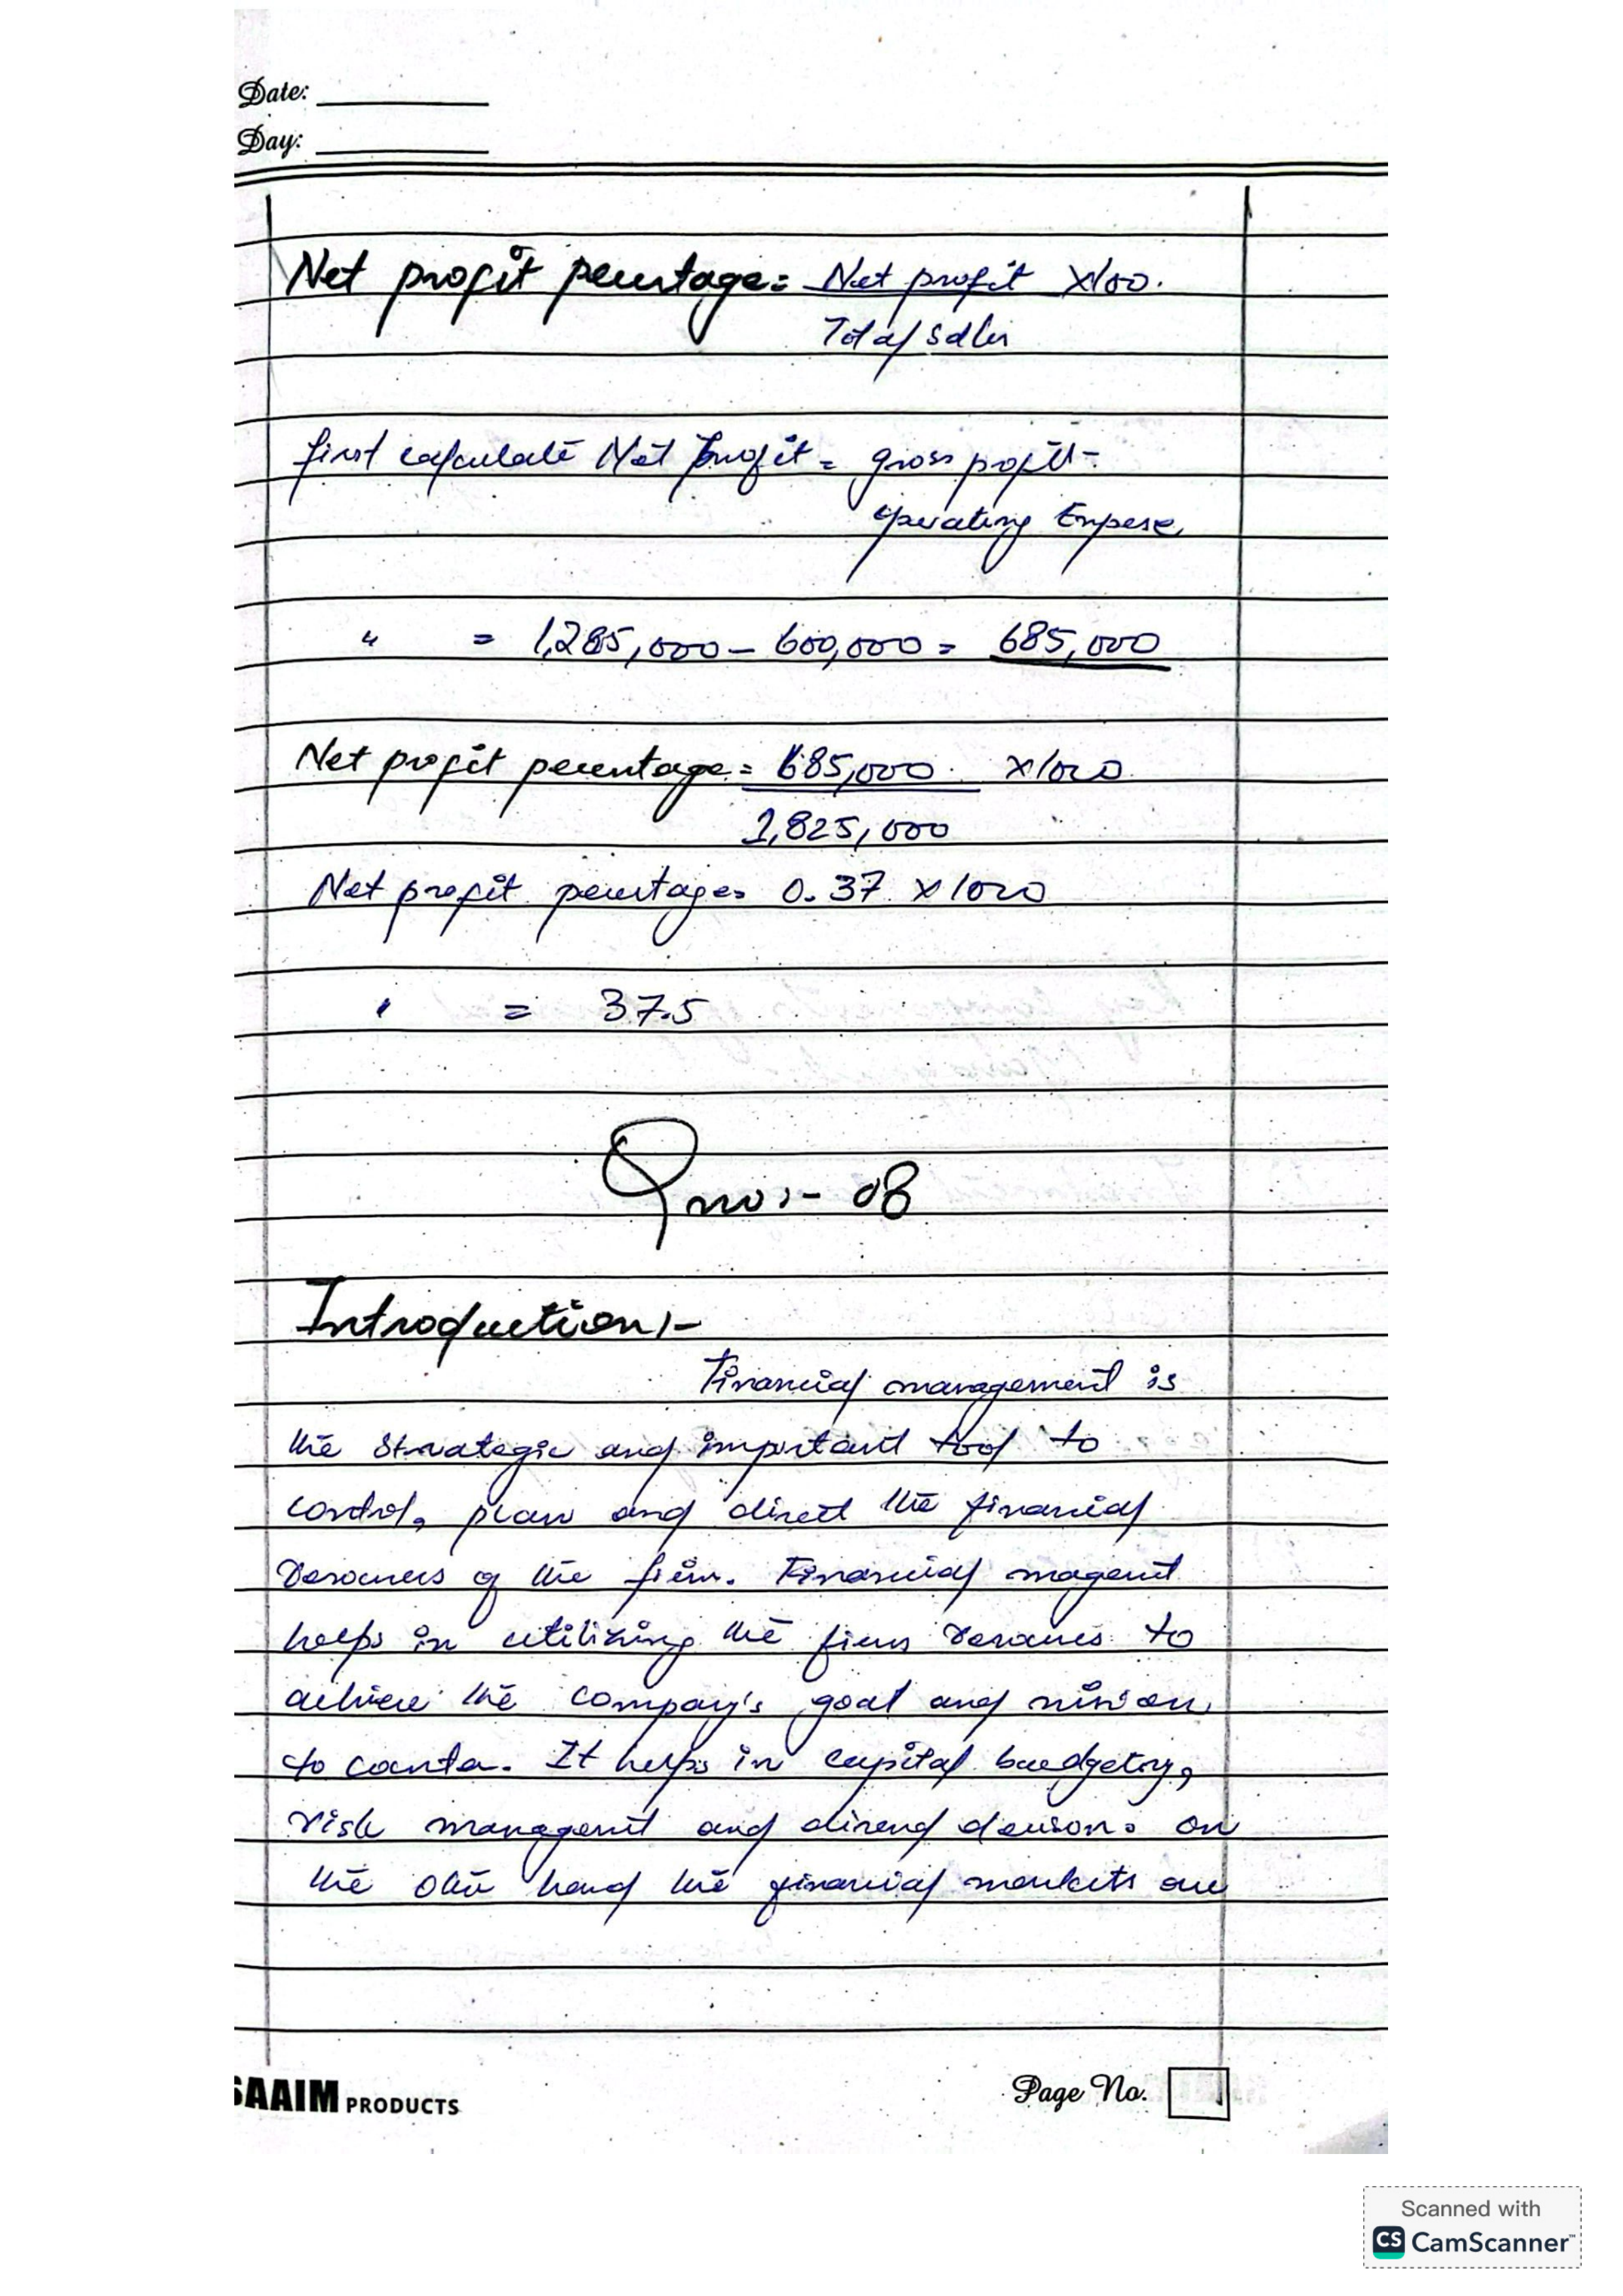 Date:
Day:
Net profit pecentage = Net profit x100.
Total sales
first calculate Net profit = gross profit -
operating Expense
" = 1,285,000 - 600,000 = 685,000
Net profit pecentage = 685,000 x100
1,825,000
Net profit pecentage = 0.37 x100
" = 37.5
Q no:- 08
Introduction:-
Financial management is
the strategic and important tool to
control, plan and direct the financial
resources of the firm. Financial
helps in utilizing the firm resources to
achieve the company's goal and mission
to. It helps in capital budgeting,
risk management and decision. on
the other hand the financial markets are
SAAIM PRODUCTS
Page No.
Scanned with
CS CamScanner™